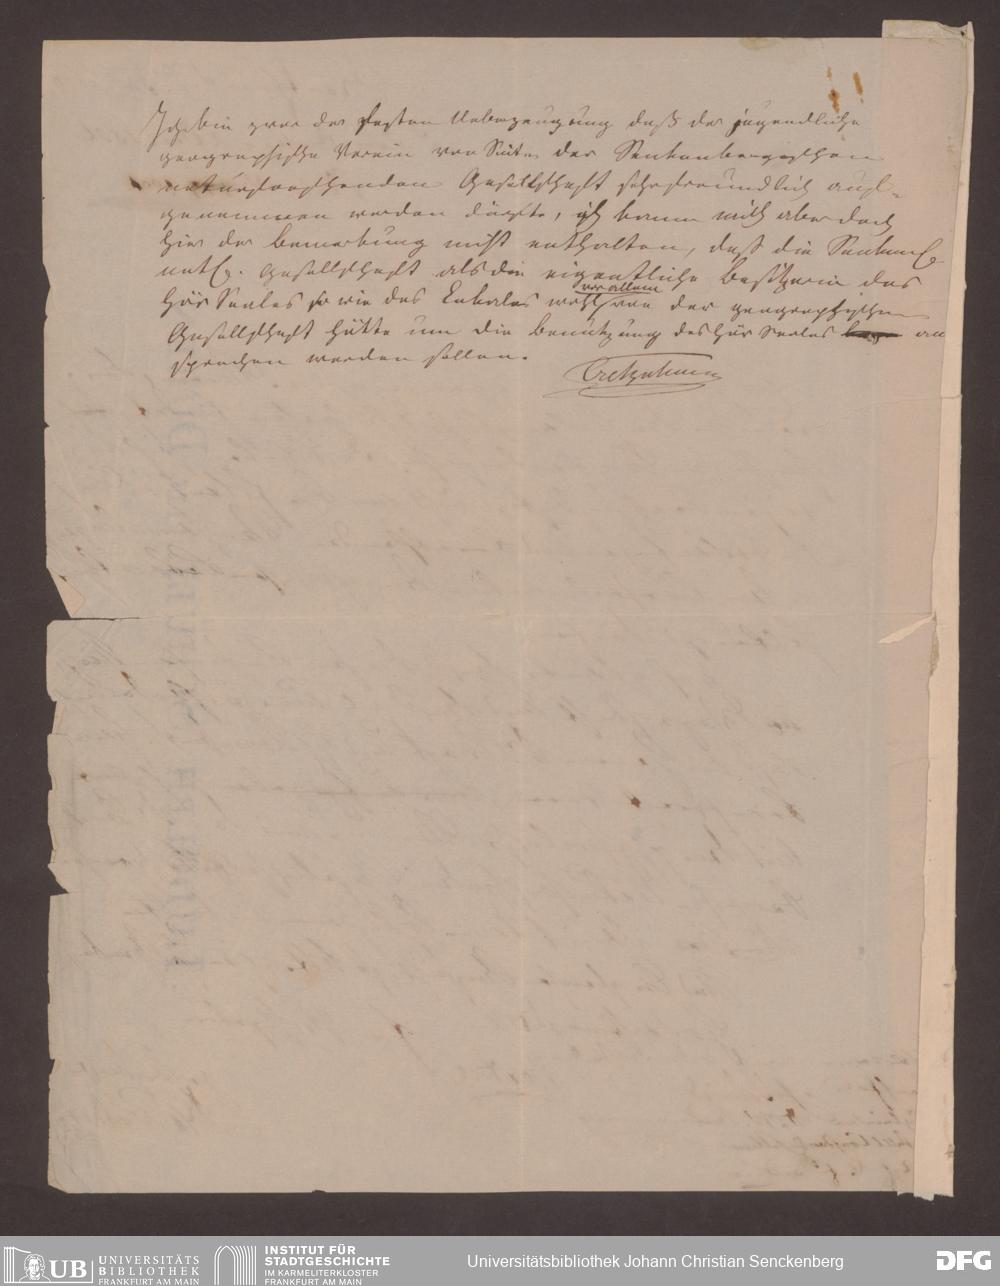 Ich bin zwar der festen Ueberzeugung daß der jugendliche
geographische Verein von Seiten der Senkenbergischen
naturforschenden Gesellschaft sehr freundlich auf-
genommen werden dürfte, ich kann mich aber doch
hier der Bemerkung nicht enthalten, daß die Senkenb.
natf. Gesellschaft als die eigentliche Besitzerin des
Hör Saales so wie des Lokales wohl vor allem von der geographischen
Gesellschaft hätte um die Benützung des Hör Saales an
sprochen werden sollen.
Cretzschmar
UB UNIVERSITÄTS
BIBLIOTHEK
FRANKFURT AM MAIN
INSTITUT FÜR
STADTGESCHICHTE
IM KARMELITERKLOSTER
FRANKFURT AM MAIN
Universitätsbibliothek Johann Christian Senckenberg
DFG